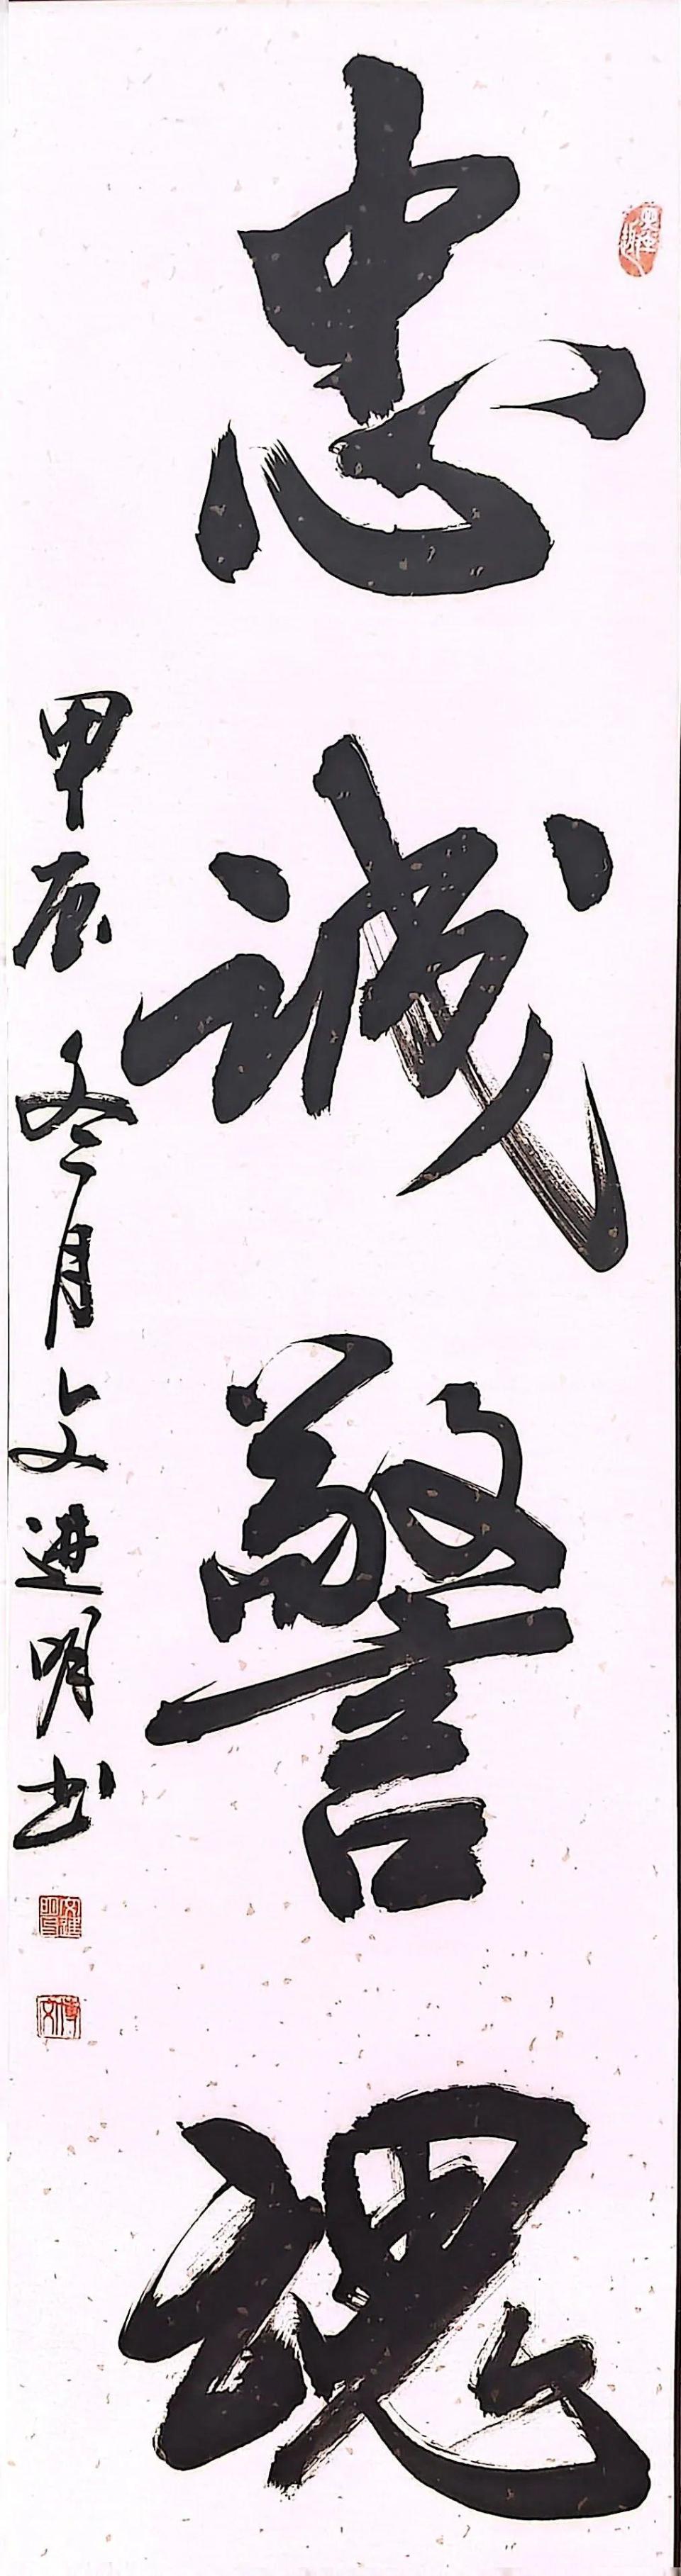 忠诚警魂
甲辰冬月文进明书